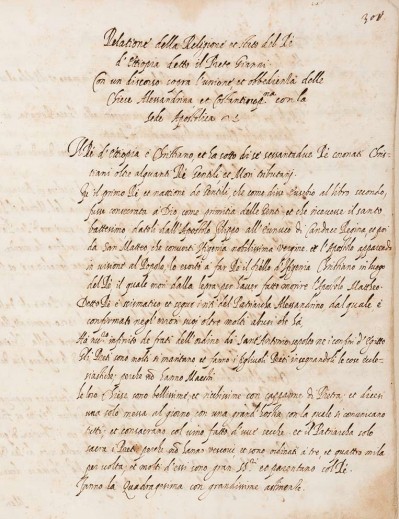 308
Relatione della Religione et stato del Rè
d'Etiopia detto il Prete Gianni
Con un discorso sopra l'unione et obbedienza delle
Chiese Alessandrina et Costantinop.na con la
sede Apostolica
Il Rè d'Etiopia è Christiano, et ha sotto di se settantadue Rè coronati Chris
tiani oltre alquanti Rè Gentili et Mori tributarij.
Fu il primo Rè et natione de Gentili, che come dice Eusebio al libro secondo,
fusse consecrata à Dio come primitia delle Genti et che ricevesse il santo
battesimo dato dall'Apostolo Filippo all'Eunuco di Candace Regina, et poi
da San Matteo che convertì Ifigenia nobilissima vergine, et l'Apostolo apparendo
in visione al Popolo, lo esortò a far Rè il fratello d'Ifigenia Christiano in luogo
del Rè il quale non dalla lepra per haver fatto morire l'Apostolo Mattheo.
Detto Rè è scismatico et segue i riti del Patriarcha Alessandrino dal quale è
confirmato negli errori suoi oltre molti abusi che hà.
Ha nu.o infinito de frati dell'ordine di Sant'Antonio sepolto ne i confini d'Egitto
Li Preti sono molti si maritano et fanno i figliuoli Preti insegnandoli le cose eccle-
siastiche; perche nō hanno Maestri.
Le loro Chiese sono bellissime et ricchissime con
una sola messa al giorno con una grand'hostia con la quale si comunicano
tutti, et consacrano col vino fatto d'uve secche, et il Patriarcha solo
sacra i Preti perche nō hanno vescovi et sono ordinati à tre, et quattro mila
per volta; et molti d'essi sono gran SS.ri et parentano col Rè.
Fanno la Quadragesima con grandissime astinenze.